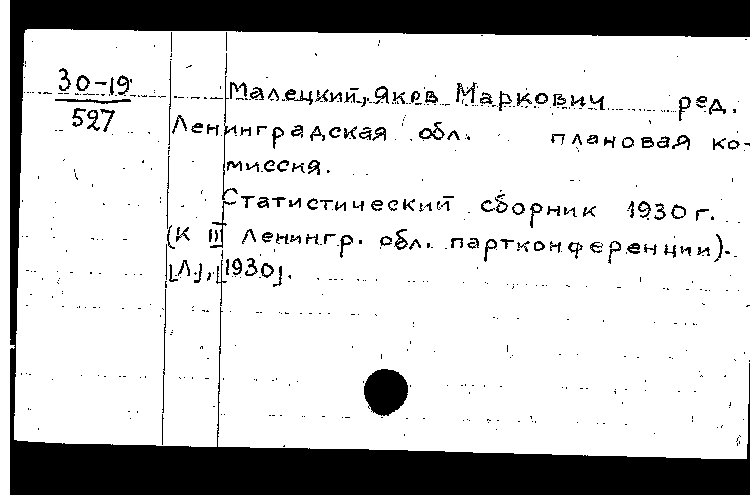 30-19
527
Малецкий, Яков Маркович ред.
Ленинградская обл. плановая ко-
миссия.
Статистический сборник 1930 г.
(К III Ленингр. обл. партконференции).
[Л.], [1930].